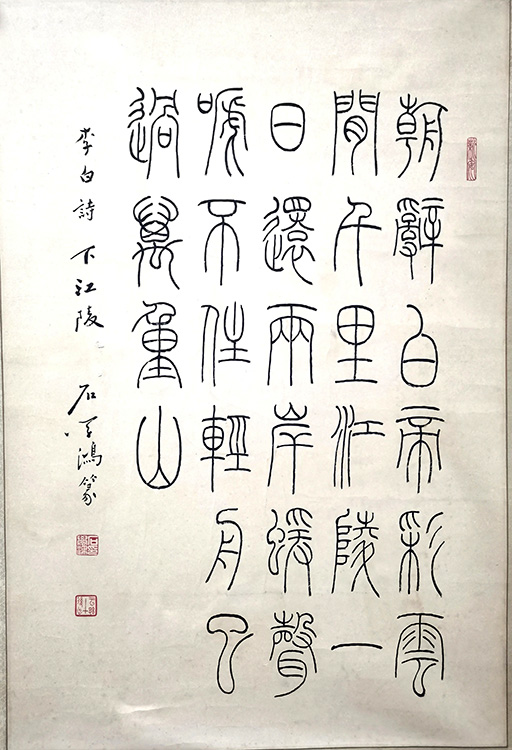 朝辭白帝彩雲
閒千里江陵一
日還兩岸蝯聲
嗁不住輕舟已
過萬重山
李白詩 下江陵 石鴻篆